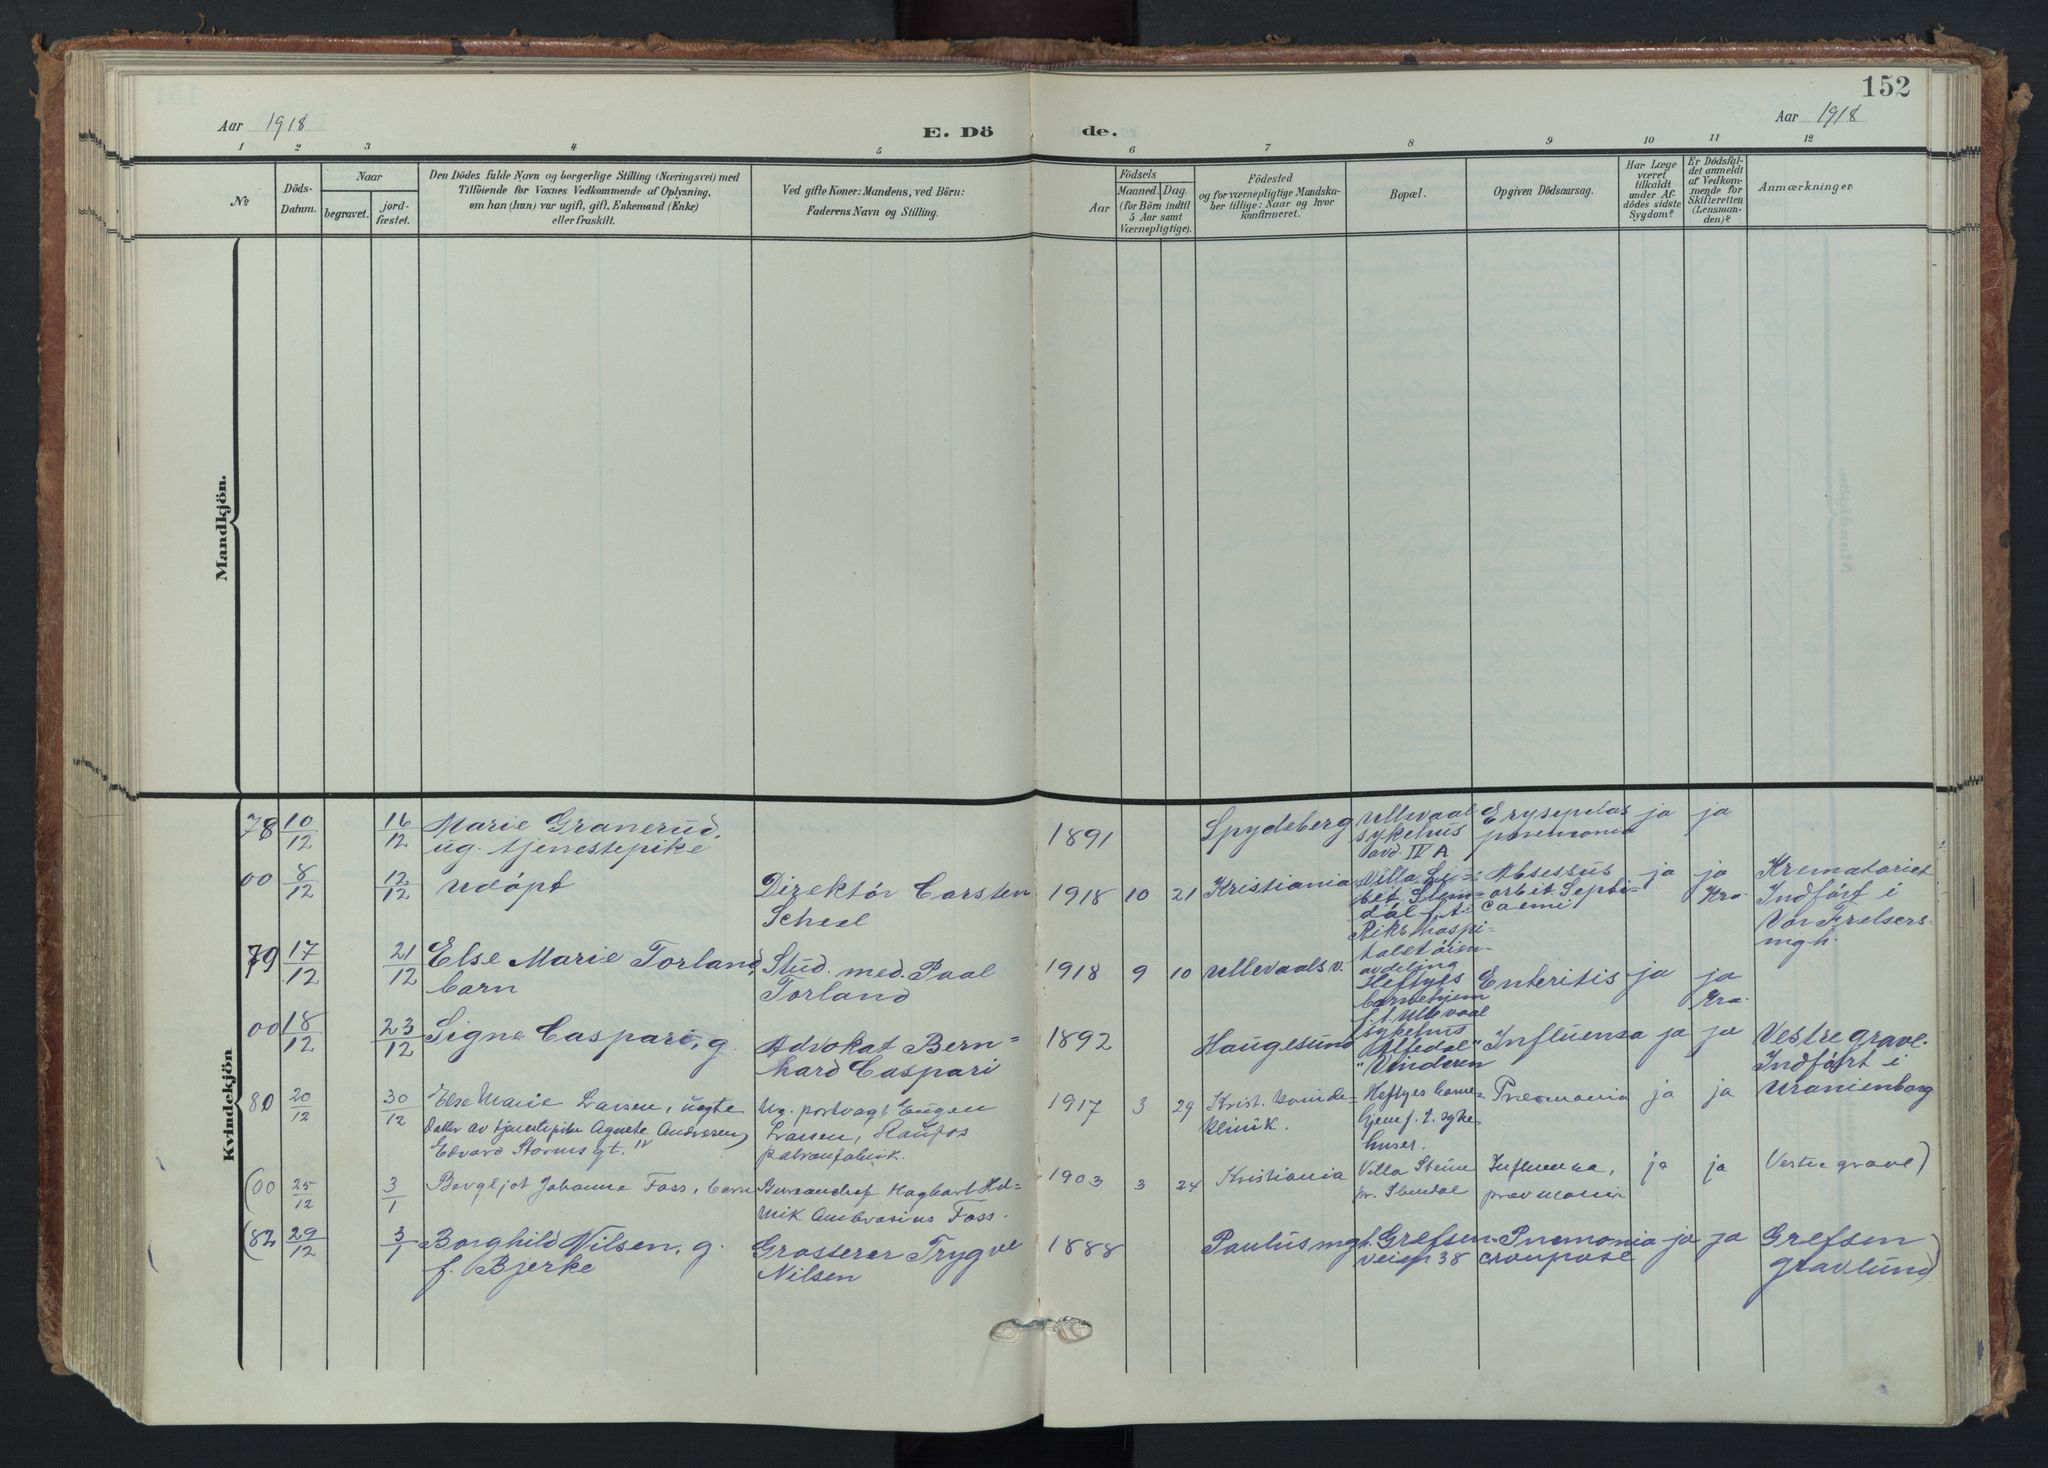 152
Aar 1918
E. Dö
de.
Aar 1918
1 2 3 4 5 6 7 8 9 10 11 12
№
Döds-
Datum.
Naar
begravet.
jord-
fæstet.
Den Dödes fulde Navn og borgerlige Stilling (Næringsvei) med
Tilföiende for Voxnes Vedkommende af Oplysning,
om han (hun) var ugift, gift, Enkemand (Enke)
eller fraskilt.
Ved gifte Koner: Mandens, ved Börn:
Faderens Navn og Stilling.
Födsels
Aar
Maaned. Dag.
(for Börn indtil
5 Aar samt
Værnepligtige).
Födested
og for værnepligtige Mandska-
ber tillige: Naar og hvor
konfirmeret.
Bopæl.
Opgiven Dödsaarsag.
Har Læge
været
tilkaldt
under Af-
dödes sidste
Sygdom?
Er Dödsfal-
det anmeldt
af Vedkom-
mende for
Skifteretten
(Lensman-
den)?
Anmærkninger
Mandkjön.
Kvindekjön
78 10/12 16/12 Marie Granerud, 1891 Spydeberg Ullevaal Erysipelas ja ja
ug. tjenestepike sykehus pnevmonia
avd. IV A
00 8/12 12/12 Udöpt Direktör Carsten 1918 10 21 Kristiania Villa Absessus ja ja Krematoriet
Scheel orbit. Septi- Kra Indfört i
dal f. t. caemi Vor Frelsers-
Rikshospi- mgh.
talet ören-
avdeling
79 17/12 21/12 Else Marie Torland, Stud. med. Paal 1918 9 10 Ullevaals v. Heftyes Enteritis ja ja
barn Torland barnehjem Kra.
f. t. Ullevaal
sykehus
00 18/12 23/12 Signe Caspari, g. Advokat Bern- 1892 Haugesund "Alfedal" Influensa ja ja Vestre gravl.
hard Caspari Vinderen Indfört i
Uranienborg
80 20/12 30/12 Else Marie Larsen, uegte Ug. portvagt Eugen 1917 3 29 Krist. kvinde- Heftyes barne- Pnevmonia ja ja
datter av tjenestepike Agnete Andresen, Larsen, Raufos klinik. hjem f. t. syke-
Edvard Storms gt. patronfabrik. huset.
(00 25/12 3/1 Bergljot Johanne Foss, barn Bureauchef Hagbart Hd- 1903 3 24 Kristiania Villa Steine Influensa, ja ja Vestre gravl)
rik Ambrosius Foss. pr. Slemdal pnevmoni
(82 29/12 3/1 Borghild Nilsen, g. Grosserer Trygve 1888 Paulus mgt. Grefsen- Pnemonia ja ja Grefsen
f. Bjerke Nilsen veien 38 croupose gravlund)